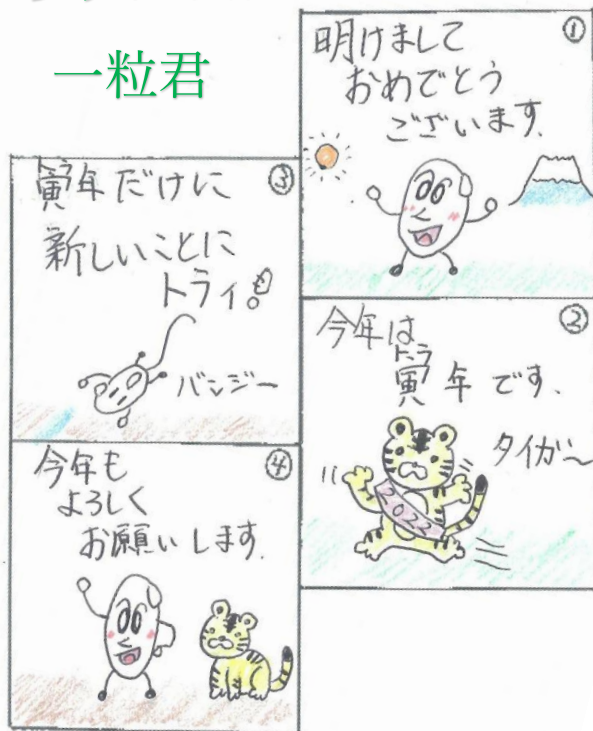 一粒君
①
明けまして
おめでとう
ございます.
②
今年は
トラ
寅年です.
タイガ〜
2022
③
トラ
寅年だけに
新しいことに
トライ!
バンジー
④
今年も
よろしく
お願いします.